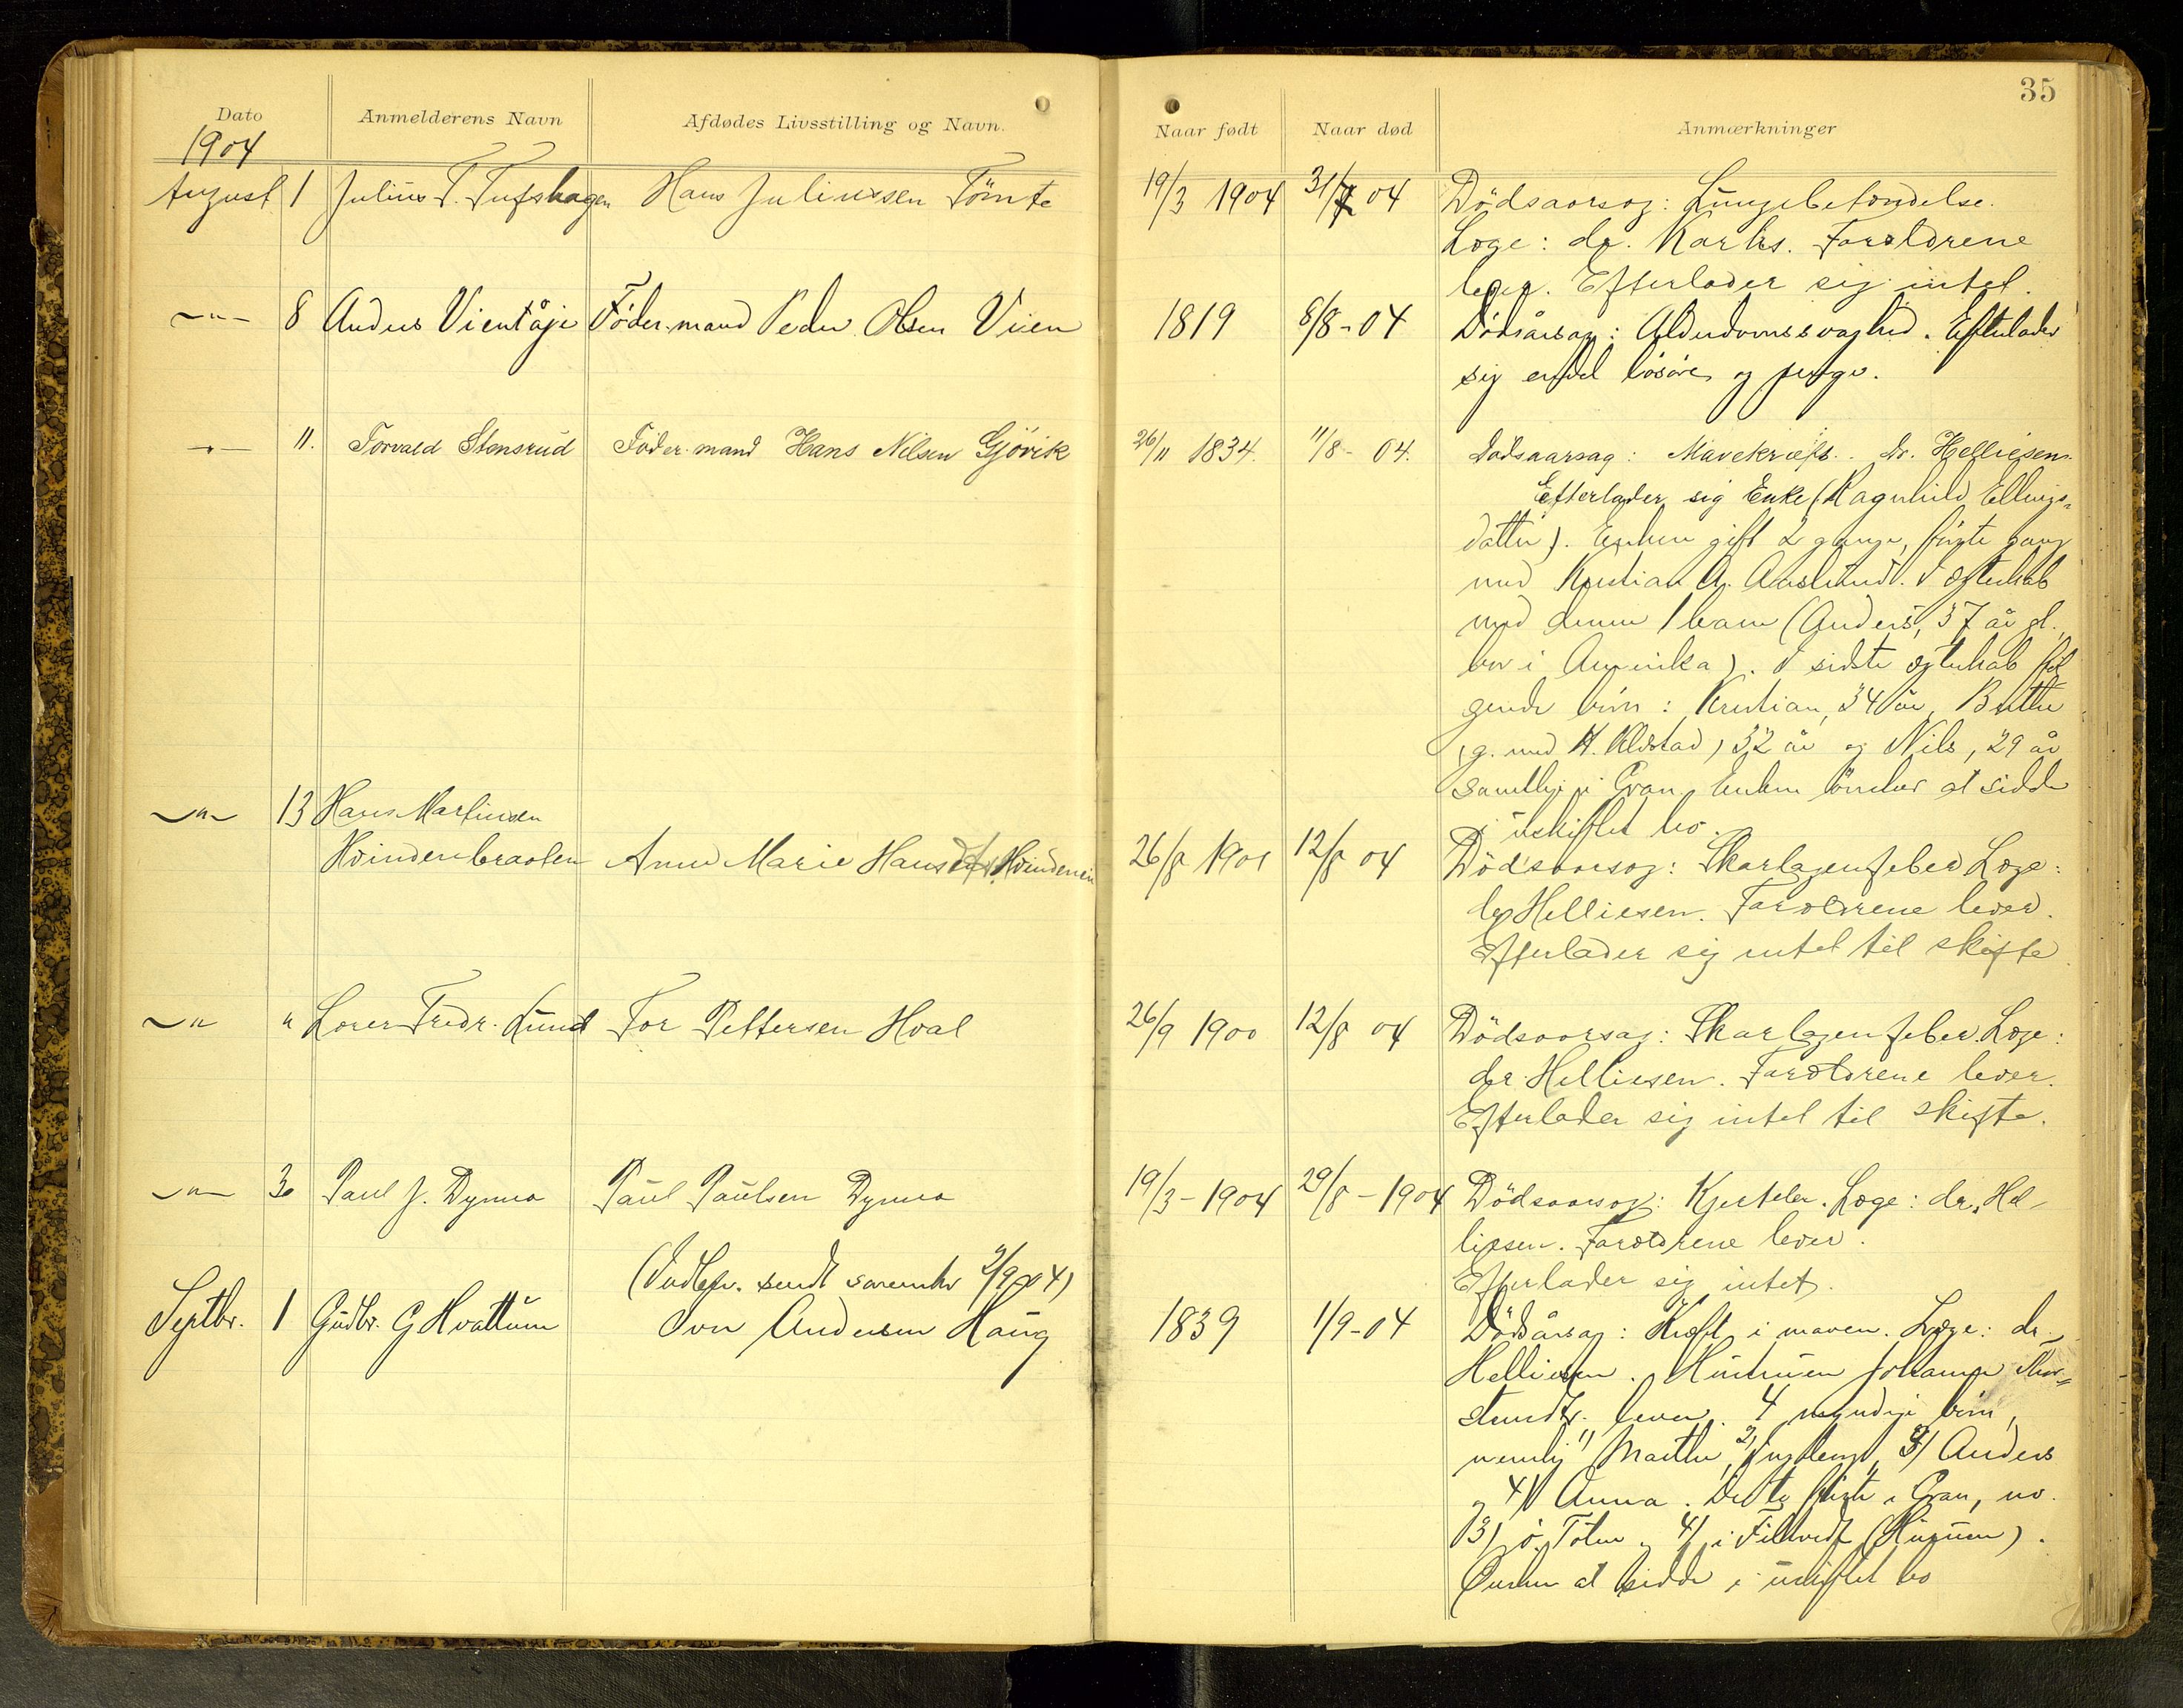 35
Dato Anmelderens Navn Afdødes Livsstilling og Navn. Naar født Naar død Anmærkninger
1904
August 1 Julius T. Tufshagen Hans Juliussen Tömte 19/3 1904 31/7 04 Dödsaarsag: Lungebetændelse.
Læge: dr. Forældrene
lever. Efterlader sig intet.
-"- 8 Anders Vientåje Föder.mand Peder Olsen Vien 1819 8/8-04 Dödsårsag: Alderdomssvaghed. Efterlader
sig endel lösöre og penge.
-"- 11. Torvald Stensrud Föder.mand Hans Nilsen Gjövik 26/11 1834. 11/8- 04. Dödsaarsag: Mavekræft. dr. Helliesen.
Efterlader sig Enke (Ragnhild Ellings-
datter). Enken gift 2 gange, förste gang
med Kristian A. I ægteskab
med denne 1 barn (Anders, 37 år gl.,
bor i Amerika). I sidste ægteskab föl
gende börn: Kristian, 34 år, Berthe
(g. med H. Alvstad) 32 år og Nils, 29 år
samtlige i Gran. Enken önsker at sidde
i uskiftet bo.
-"- 13 Hans Martinsen
Hvindenbraaten Anne Marie Hansdtr. Hvindenei 26/8 1901 12/8 04 Dödsaarsag: Skarlagensfeber Læge:
dr Helliesen. Forældrene lever.
Efterlader sig intet til skifte.
-"- " Lorer Fredr. Lund Tor Pettersen Hval 26/9 1900 12/8 04 Dödsaarsag: Skarlagensfeber. Læge:
dr. Helliesen. Forældrene lever.
Efterlader sig intet til skifte.
-"- 30 Paul J. Dynna Paul Paulsen Dynna 19/3-1904 29/8-1904 Dödsaarsag: Kjerteler. Læge: dr. Hel-
liesen. Forældrene lever.
(Indber. sendt sorenskr 2/9 04) Efterlader sig intet.
Septbr. 1 Gudbr. G Hvattum Iver Andersen Haug 1839 1/9-04 Dödsårsag: Kræft i maven. Læge: dr.
Helliesen. Hustruen Johanne Thor-
stensdtr. lever. 4 myndige börn,
nemlig 1) Marthe, 2) Ingeborg, 3) Anders
og 4) Anna. De to förste i Gran, no.
(3) ö. Toten og 4) i Filtvedt (Hurum).
Önsker at sidde i uskiftet bo